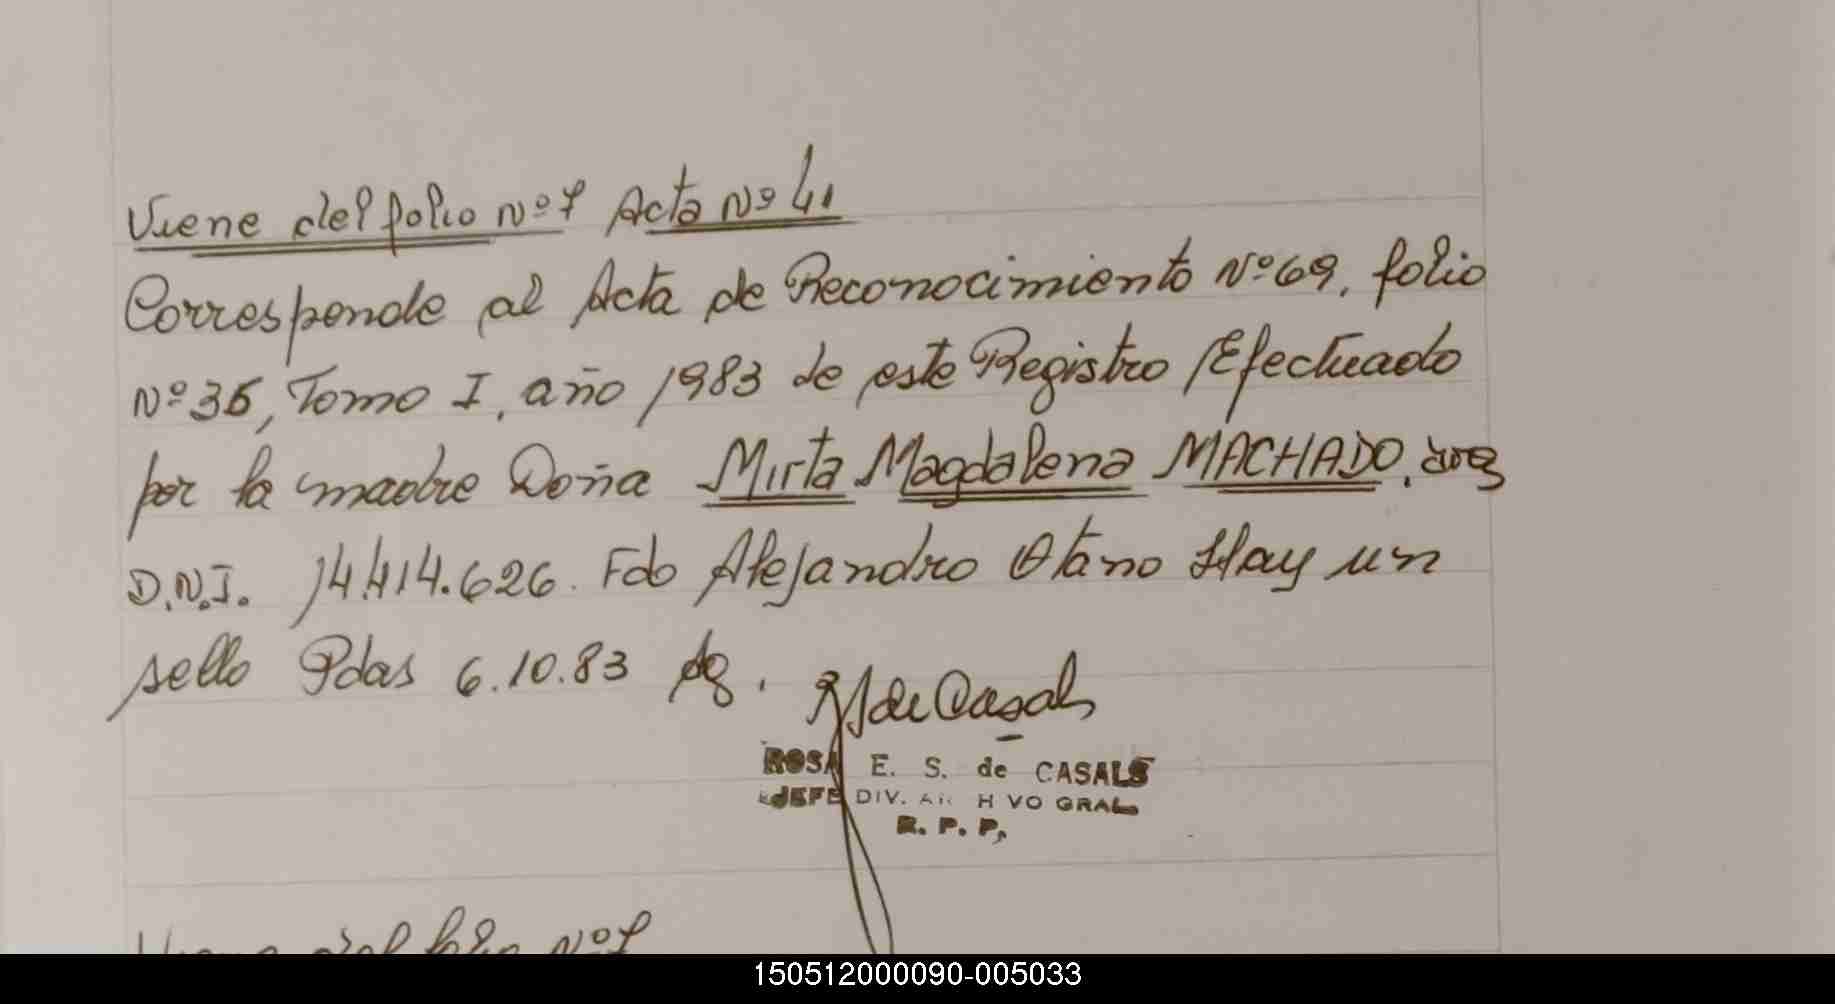 Viene del folio Nº 7 Acta Nº 41
Corresponde al Acta de Reconocimiento Nº 69, folio
Nº 36, Tomo I, año 1983 de este Registro Efectuado
por la madre Doña Mirta Magdalena MACHADO. arg
D.N.I. 14.414.626. Fdo Alejandro Otaño Hay un
sello Pdas 6.10.83
R S de Casals
ROSA E. S. de CASALS
JEFE DIV. ARCHIVO GRAL
R. P. P.
Viene del folio Nº 7
150512000090-005033